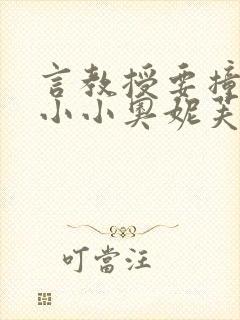 言教授要撞
小小奧妮芙
叮當汪